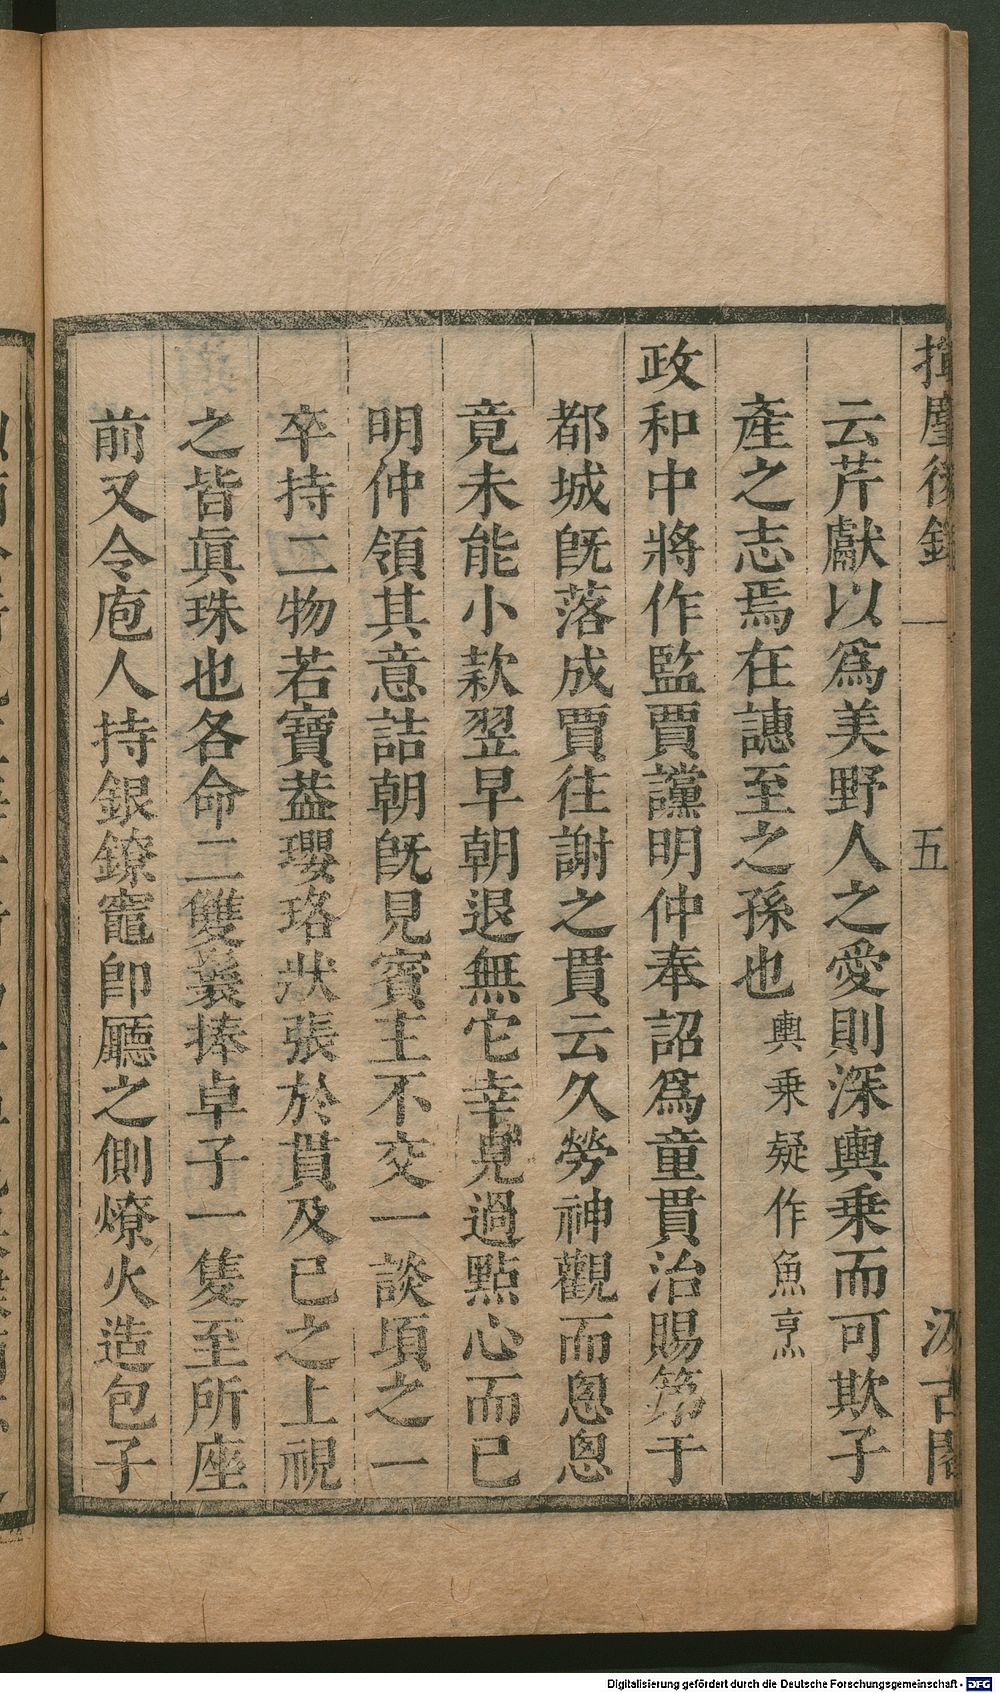 揮麈後錄 一 五 汲古閣
云芹獻以爲美野人之愛則深輿乗而可欺子
產之志焉在譓至之孫也輿乗疑作魚烹
政和中將作監賈讜明仲奉詔爲童貫治賜第于
都城旣落成賈往謝之貫云久勞神觀而悤悤
竟未能小款翌早朝退無它幸見過點心而已
明仲領其意詰朝旣見賓主不交一談頃之一
卒持二物若寶葢瓔珞狀張於貫及已之上視
之皆眞珠也各命二雙鬟捧卓子一隻至所座
前又令庖人持銀鐐竈卽廳之側燎火造包子
Digitalisierung gefördert durch die Deutsche Forschungsgemeinschaft - DFG